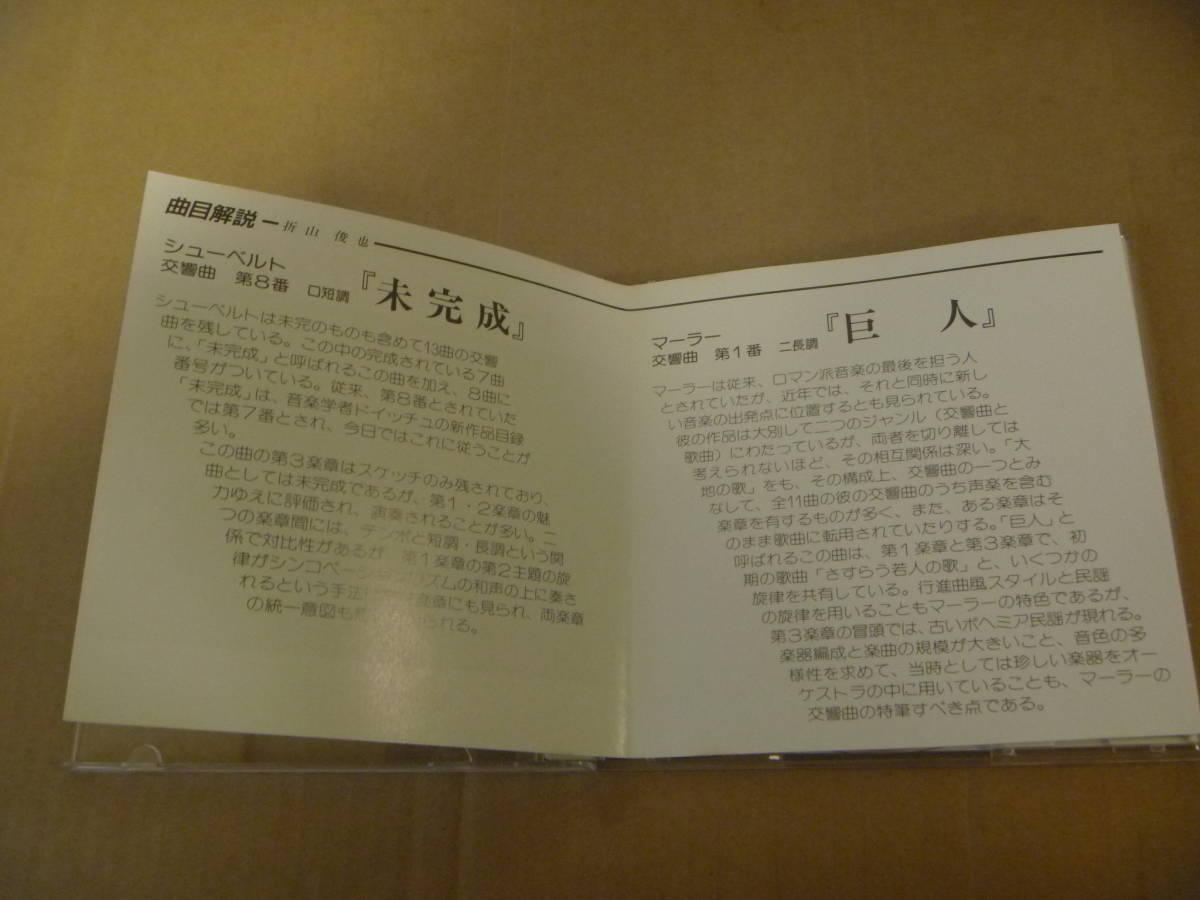 曲目解説 ー 折山 俊也
シューベルト
交響曲 第8番 ロ短調 『未完成』
シューベルトは未完のものも含めて13曲の交響
曲を残している。この中の完成されている7曲
に、「未完成」と呼ばれるこの曲を加え、8曲に
番号がついている。従来、第8番とされていた
「未完成」は、音楽学者ドイッチュの新作品目録
では第7番とされ、今日ではこれに従うことが
多い。
この曲の第3楽章はスケッチのみ残されており、
曲としては未完成であるが、第1・2楽章の魅
力ゆえに評価され、演奏されることが多い。二
つの楽章間には、テンポと短調・長調という関
係で対比性があるが、第1楽章の第2主題の旋
律がシンコペーションリズムの和声の上に奏さ
れるという手法 楽章にも見られ、両楽章
の統一意図も られる。
マーラー
交響曲 第1番 ニ長調 『巨 人』
マーラーは従来、ロマン派音楽の最後を担う人
とされていたが、近年では、それと同時に新し
い音楽の出発点に位置するとも見られている。
彼の作品は大別して二つのジャンル（交響曲と
歌曲）にわたっているが、両者を切り離しては
考えられないほど、その相互関係は深い。「大
地の歌」をも、その構成上、交響曲の一つとみ
なして、全11曲の彼の交響曲のうち声楽を含む
楽章を有するものが多く、また、ある楽章はそ
のまま歌曲に転用されていたりする。「巨人」と
呼ばれるこの曲は、第1楽章と第3楽章で、初
期の歌曲「さすらう若人の歌」と、いくつかの
旋律を共有している。行進曲風スタイルと民謡
の旋律を用いることもマーラーの特色であるが、
第3楽章の冒頭では、古いボヘミア民謡が現れる。
楽器編成と楽曲の規模が大きいこと、音色の多
様性を求めて、当時としては珍しい楽器をオー
ケストラの中に用いていることも、マーラーの
交響曲の特筆すべき点である。